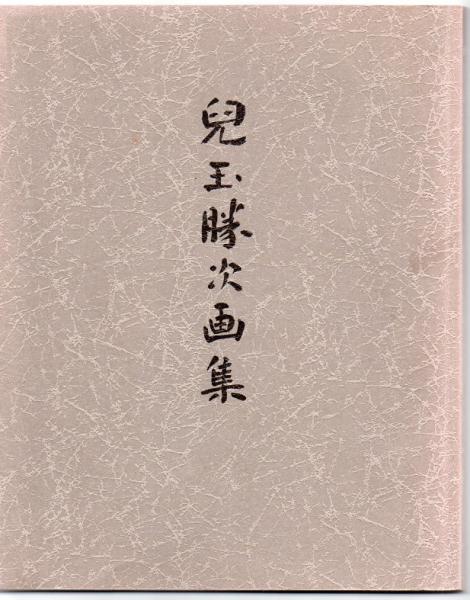 兒玉勝次画集